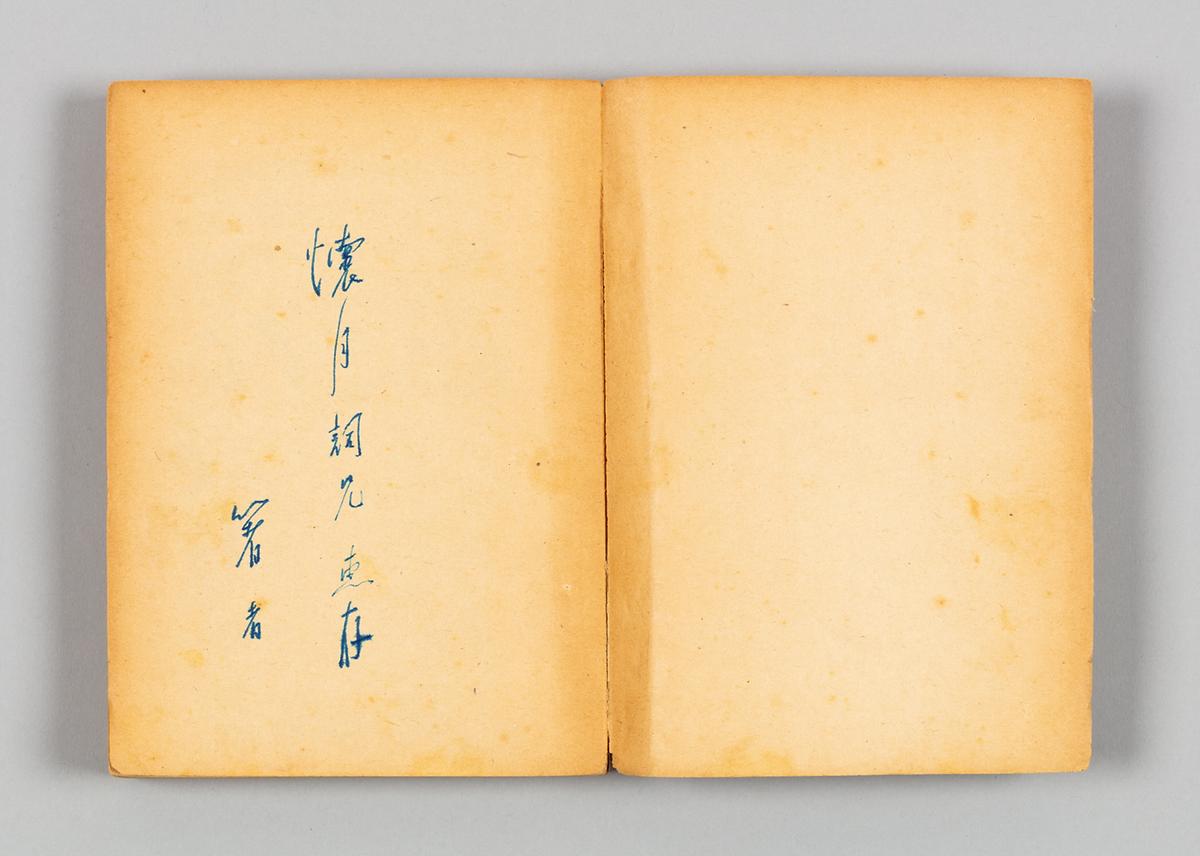 懷月詞兄惠存
著者